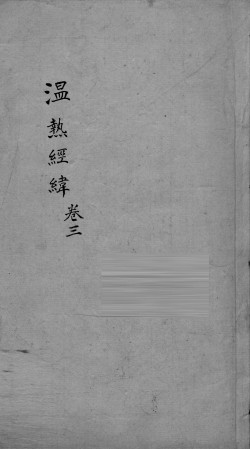 溫熱經緯卷三